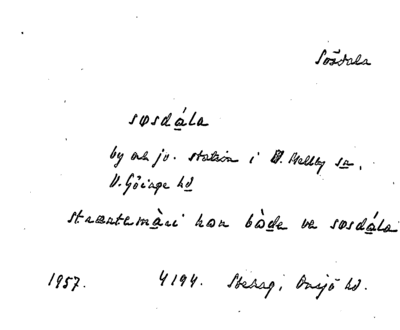 Sösdala
søsdála
by och jv. station i N. Mellby sn,
V. Göinge hd
stræntemàri kon bàde va søsdála
1957. 4194. Stehag, Onsjö hd.